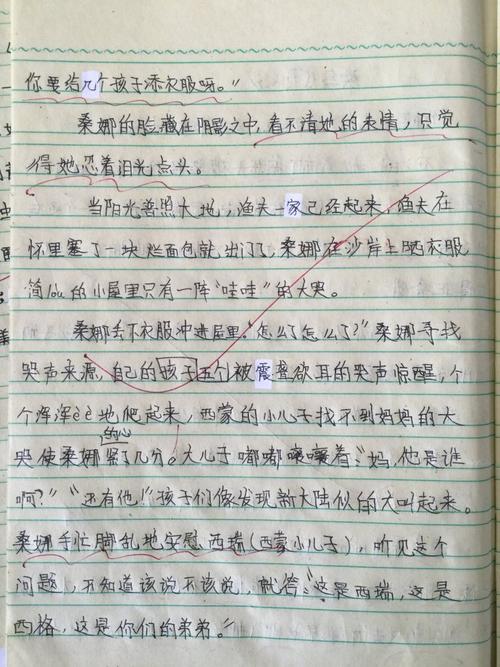 你要给几个孩子添衣服呀。"
桑娜的脸藏在阴影之中,看不清她的表情,只觉
得她忍着泪光点头。
当阳光普照大地,渔夫一家已经起来,渔夫在
怀里塞了一块烂面包就出门了,桑娜在沙岸上晒衣服
简lou的小屋里只有一阵"哇哇"的大哭。
桑娜丢下衣服冲进屋里。"怎么了怎么了?"桑娜寻找
哭声来源,自己的孩子五个被震聋欲耳的哭声惊醒,个
个浑浑èè地爬起来,西蒙的小儿子找不到妈妈的大
哭使桑娜的心紧了几分。大儿子嘟嘟嚷嚷着:"妈,他是谁
啊?""还有他!"孩子们像发现新大陆似的大叫起来。
桑娜手忙脚乱地安慰西瑞(西蒙小儿子),听见这个
问题,不知道该说不该说,就答:"这是西瑞,这是
西格,这是你们的弟弟。"